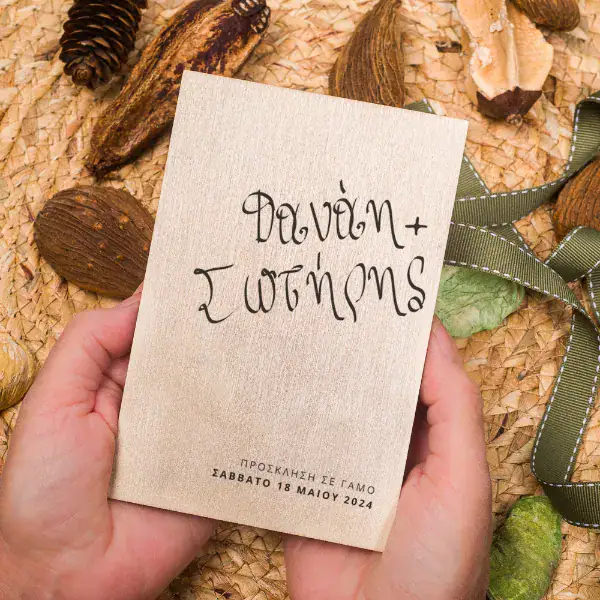 Δανάη +
Σωτήρης
ΠΡΟΣΚΛΗΣΗ ΣΕ ΓΑΜΟ
ΣΑΒΒΑΤΟ 18 ΜΑΙΟΥ 2024